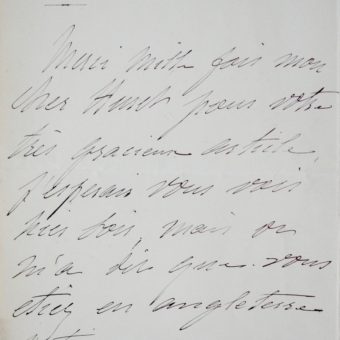 Merci mille fois mon
cher Hurel pour votre
très gracieux article.
j'esperais vous voir
hier soir, mais on
m'a dit que vous
étiez en angleterre